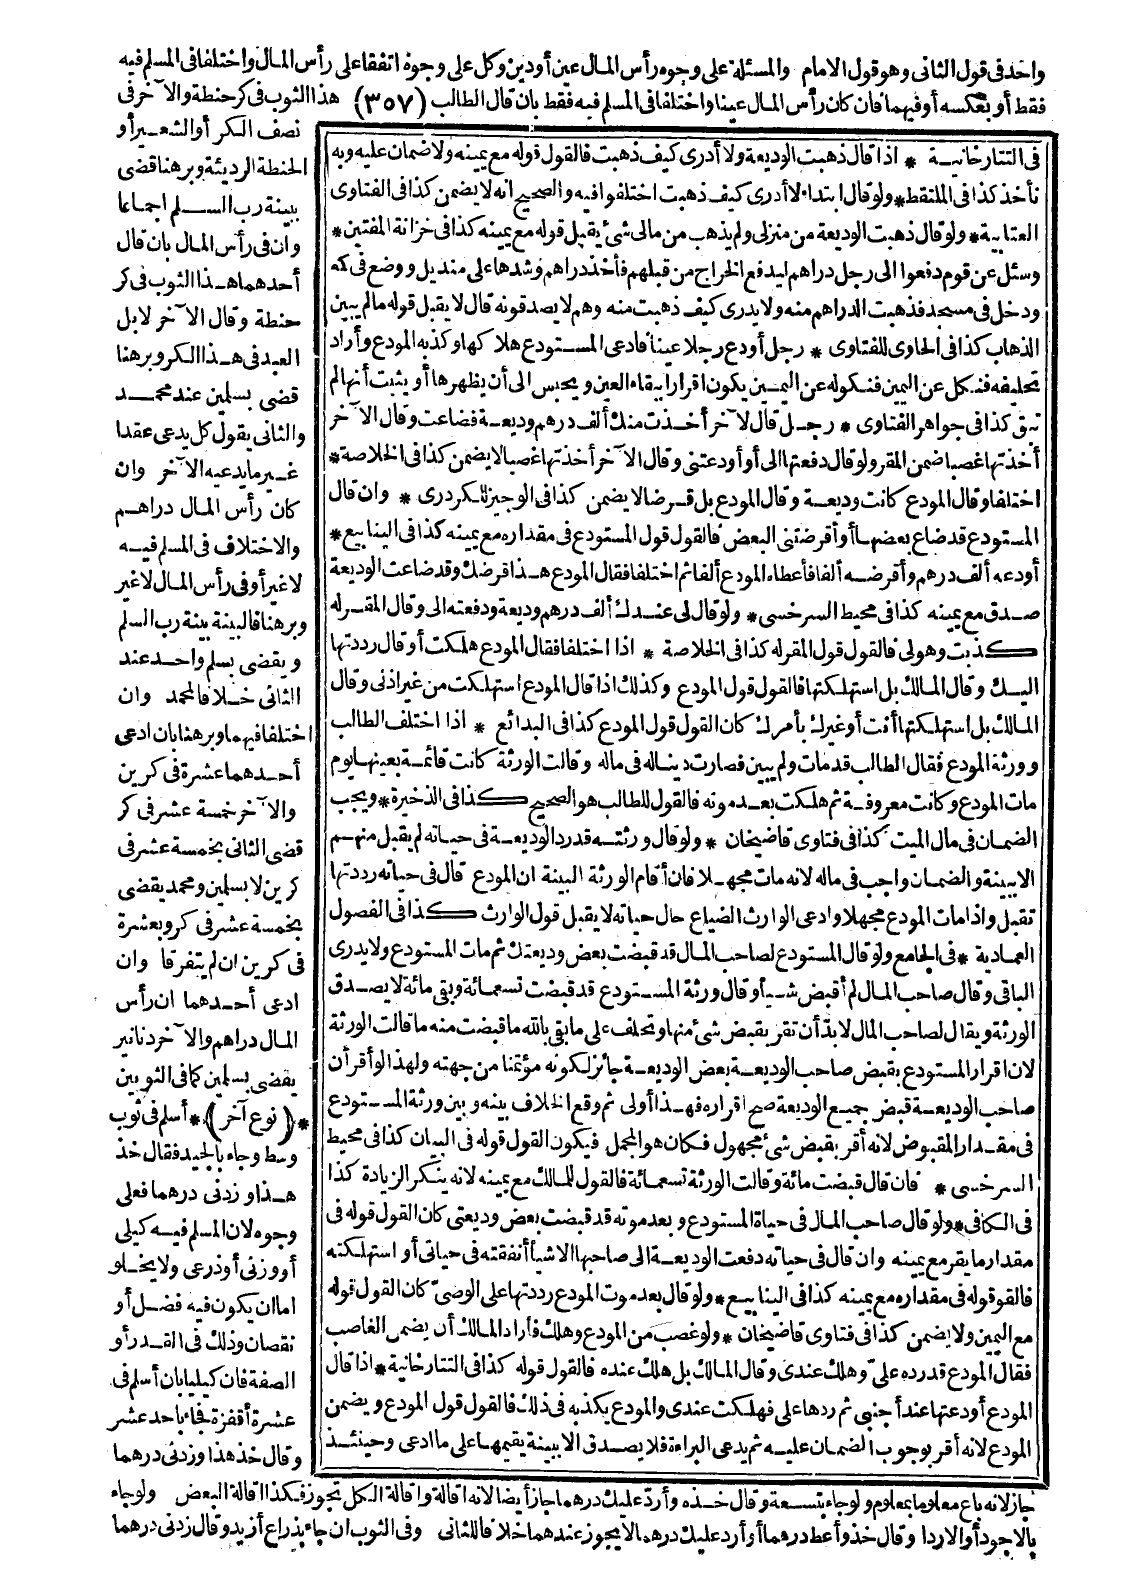 واحد فى قول الثانى وهو قول الامام والمسئلة على وجوه رأس المال عين أو دين وكل على وجوه اتفقا على رأس المال واختلفا فى المسلم فيه
فقط أو بعكسه أو فيهما فان كان رأس المال عينا واختلفا فى المسلم فيه فقط بان قال الطالب (٣٥٧) هذا الثوب فى كر حنطة والآخر فى
نصف الكر أو الشعير أو
الحنطة الرديئة وبرهنا قضى
ببينة رب السلم اجماعا
وان فى رأس المال بان قال
أحدهما هذا الثوب فى كر
حنطة وقال الآخر لا بل
العبد فى هذا الكر وبرهنا
قضى بسلمين عند محمد
والثانى يقول كل يدعى عقدا
غير ما يدعيه الآخر وان
كان رأس المال دراهم
والاختلاف فى المسلم فيه
لا غير أو فى رأس المال لا غير
وبرهنا فالبينة بينة رب السلم
ويقضى بسلم واحد عند
الثانى خلافا لمحمد وان
اختلفا فيهما وبرهنا بان ادعى
أحدهما عشرة فى كرين
والآخر خمسة عشر فى كر
قضى الثانى بخمسة عشر فى
كرين لا بسلمين ومحمد يقضى
بخمسة عشر فى كر وبعشرة
فى كرين ان لم يتفرقا وان
ادعى أحدهما ان رأس
المال دراهم والآخر دنانير
يقضى بسلمين كما فى الثوبين
* (نوع آخر) * أسلم فى ثوب
وسط وجاء بالجيد فقال خذ
هذا وزدنى درهما فعلى
وجوه لان المسلم فيه كيلى
أو وزنى أو ذرعى ولا يخلو
اما ان يكون فيه فضل أو
نقصان وذلك فى القدر أو
الصفة فان كيليا بان أسلم فى
عشرة أقفزة فجاء باحد عشر
وقال خذ هذا وزدنى درهما
جاز لانه باع معلوما بمعلوم ولو جاء بتسعة وقال خذه وأرد عليك درهما جاز أيضا لانه اقالة واقالة الكل تجوز فكذا اقالة البعض ولو جاء
بالاجود أو الاردا وقال خذ وأعط درهما أو أرد عليك درهما لا يجوز عندهما خلافا للثانى وفى الثوب ان جاء بذراع أزيد وقال زدنى درهما
فى التتارخانية * اذا قال ذهبت الوديعة ولا أدرى كيف ذهبت فالقول قوله مع يمينه ولا ضمان عليه وبه
نأخذ كذا فى الملتقط * ولو قال ابتداء لا أدرى كيف ذهبت اختلفوا فيه والصحيح انه لا يضمن كذا فى الفتاوى
العتابية * ولو قال ذهبت الوديعة من منزلى ولم يذهب من مالى شئ يقبل قوله مع يمينه كذا فى خزانة المفتين *
وسئل عن قوم دفعوا الى رجل دراهم ليدفع الخراج من قبلهم فأخذ دراهم وشدها على منديل ووضع فى كمه
ودخل فى مسجد فذهبت الدراهم منه ولا يدرى كيف ذهبت منه وهم لا يصدقونه قال لا يقبل قوله مالم يبين
الذهاب كذا فى الحاوى للفتاوى * رجل أودع رجلا عينا فادعى المستودع هلاكها وكذبه المودع وأراد
تحليفه فنكل عن اليمين فنكوله عن اليمين يكون اقرارا ببقاء العين ويحبس الى أن يظهرها أو يثبت أنها لم
تبق كذا فى جواهر الفتاوى * رجل قال لآخر أخذت منك ألف درهم وديعة فضاعت وقال الآخر
أخذتها غصبا ضمن المقر ولو قال دفعتها الى أو أودعتنى وقال الآخر أخذتها غصبا لا يضمن كذا فى الخلاصة *
اختلفا وقال المودع كانت وديعة وقال المودع بل قرضا لا يضمن كذا فى الوجيز للكردرى * وان قال
المستودع قد ضاع بعضها أو أقرضتنى البعض فالقول قول المستودع فى مقداره مع يمينه كذا فى الينابيع *
أودعه ألف درهم وأقرضه ألفا فأعطاه المودع ألفا ثم اختلفا فقال المودع هذا قرضك وقد ضاعت الوديعة
صدق مع يمينه كذا فى محيط السرخسى * ولو قال لى عندك ألف درهم وديعة ودفعته الى وقال المقر له
كذبت وهو لى فالقول قول المقر له كذا فى الخلاصة * اذا اختلفا فقال المودع هلكت أو قال رددتها
اليك وقال المالك بل استهلكتها فالقول قول المودع وكذلك اذا قال المودع استهلكت من غير اذنى وقال
المالك بل استهلكتها أنت أو غيرك بأمرك كان القول قول المودع كذا فى البدائع * اذا اختلف الطالب
وورثة المودع فقال الطالب قد مات ولم يبين فصارت دينا له فى ماله وقالت الورثة كانت قائمة بعينها يوم
مات المودع وكانت معروفة ثم هلكت بعد موته فالقول للطالب هو الصحيح كذا فى الذخيرة * ويجب
الضمان فى مال الميت كذا فى فتاوى قاضيخان * ولو قال ورثته قد رد الوديعة فى حياته لم يقبل منهم
الا ببينة والضمان واجب فى ماله لانه مات مجهلا فان أقام الورثة البينة ان المودع قال فى حياته رددتها
تقبل واذا مات المودع مجهلا وادعى الوارث الضياع حال حياته لا يقبل قول الوارث كذا فى الفصول
العمادية * فى الجامع ولو قال المستودع لصاحب المال قد قبضت بعض وديعتك ثم مات المستودع ولا يدرى
الباقى وقال صاحب المال لم أقبض شيأ وقال ورثة المستودع قد قبضت تسعمائة وبقى مائة لا يصدق
الورثة ويقال لصاحب المال لابد أن تقر بقبض شئ منها وتحلف على ما بقى بالله ما قبضت منه ما قالت الورثة
لان اقرار المستودع بقبض صاحب الوديعة بعض الوديعة جائز لكونه مؤتمنا من جهته ولهذا لو أقر أن
صاحب الوديعة قبض جميع الوديعة صح اقراره فهذا أولى ثم وقع الخلاف بينه وبين ورثة المستودع
فى مقدار المقبوض لانه أقر بقبض شئ مجهول فكان هو المجمل فيكون القول قوله فى البيان كذا فى محيط
السرخسى * فان قال قبضت مائة وقالت الورثة تسعمائة فالقول للمالك مع يمينه لانه ينكر الزيادة كذا
فى الكافى * ولو قال صاحب المال فى حياة المستودع وبعد موته قد قبضت بعض وديعتى كان القول قوله فى
مقدار ما يقر مع يمينه وان قال فى حياته دفعت الوديعة الى صاحبها الا شيأ أنفقته فى حياتى أو استهلكته
فالقو قوله فى مقداره مع يمينه كذا فى الينابيع * ولو قال بعد موت المودع رددتها على الوصى كان القول قوله
مع اليمين ولا يضمن كذا فى فتاوى قاضيخان * ولو غصب من المودع وهلك فأراد المالك أن يضمن الغاصب
فقال المودع قد رده على وهلك عندى وقال المالك بل هلك عنده فالقول قوله كذا فى التتارخانية * اذا قال
المودع أودعتها عند أجنبى ثم ردها على فهلكت عندى والمودع يكذبه فى ذلك فالقول قول المودع ويضمن
المودع لانه أقر بوجوب الضمان عليه ثم يدعى البراءة فلا يصدق الا ببينة يقيمها على ما ادعى وحينئذ